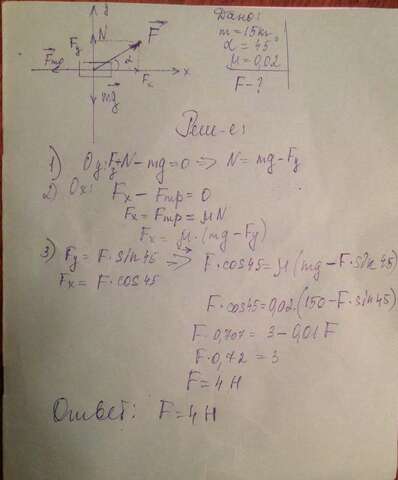 y
N
F⃗
Дано:
m = 15 кг
α = 45°
μ = 0,02
F - ?
Fy
F⃗тр
α
Fx
x
mg⃗
Реш-е:
1) Oy: Fy+N - mg = 0 => N = mg - Fy
2) Ox: Fx - Fтр = 0
Fx = Fтр = μN
Fx = μ·(mg - Fy)
3) Fy = F·sin45 => F·cos45 = μ(mg - F·sin45)
Fx = F·cos45
F·cos45 = 0,02·(150 - F·sin45)
F·0,707 = 3 - 0,01F
F·0,72 = 3
F = 4 Н
Ответ: F = 4 Н